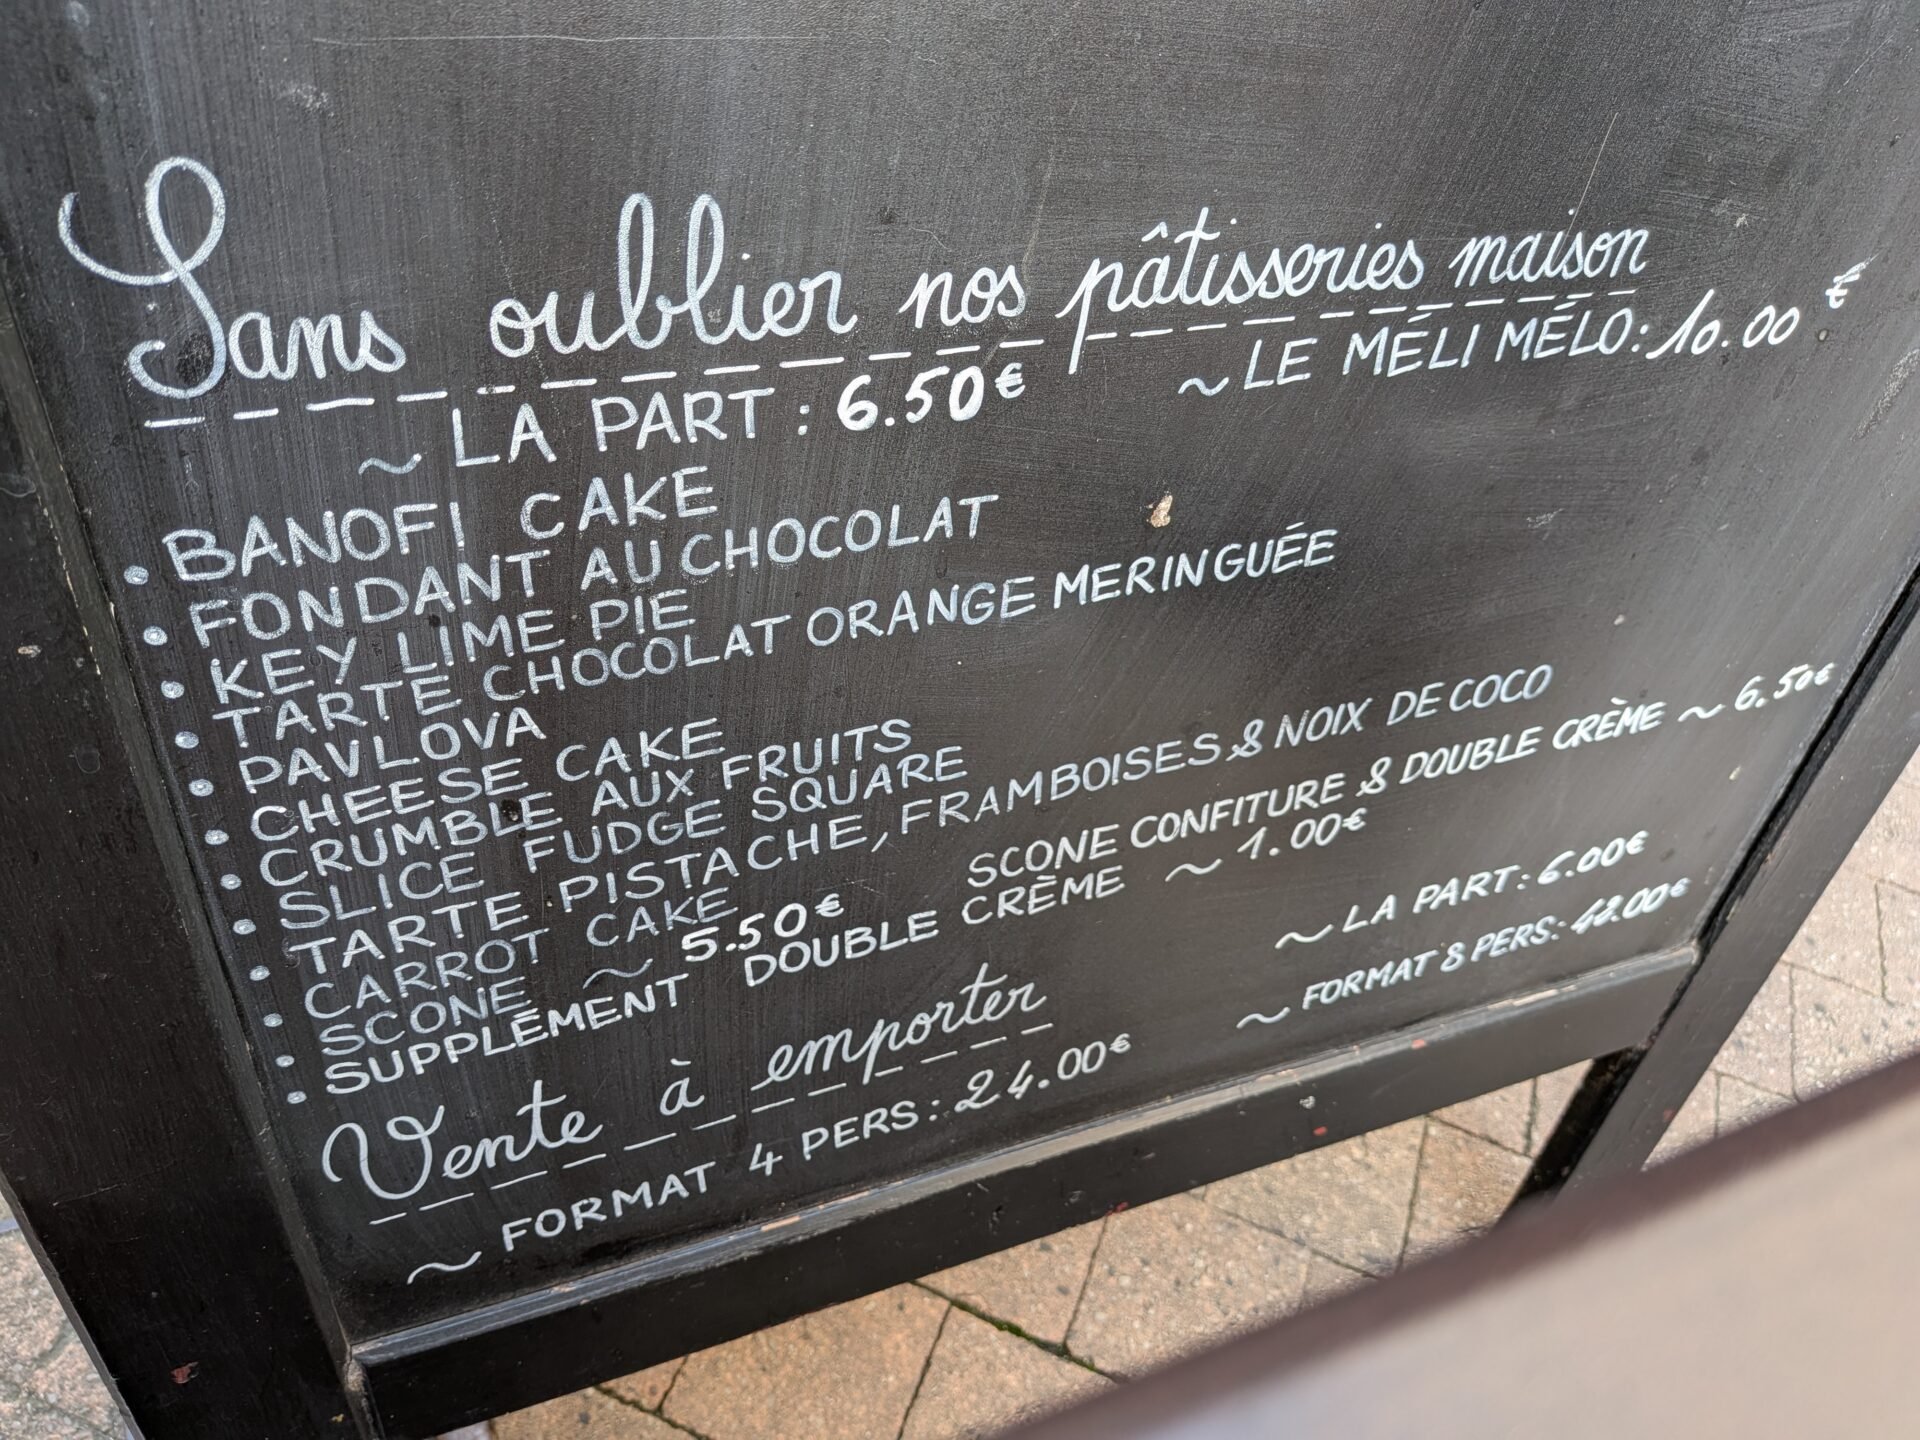 Sans oublier nos pâtisseries maison
~ LA PART : 6.50€ ~ LE MÉLI MÉLO: 10.00 €
• BANOFI CAKE
• FONDANT AU CHOCOLAT
• KEY LIME PIE
• TARTE CHOCOLAT ORANGE MERINGUÉE
• PAVLOVA
• CHEESE CAKE
• CRUMBLE AUX FRUITS
• SLICE FUDGE SQUARE
• TARTE PISTACHE, FRAMBOISES & NOIX DE COCO
• CARROT CAKE
• SCONE ~ 5.50€ SCONE CONFITURE & DOUBLE CRÈME ~ 6.50€
• SUPPLÉMENT DOUBLE CRÈME ~ 1.00€
Vente à emporter ~ LA PART: 6.00€
~ FORMAT 4 PERS: 24.00€ ~ FORMAT 8 PERS: 42.00€